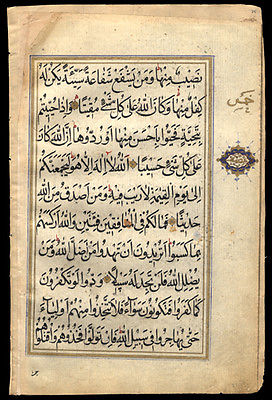 نَصِيبٌ مِنْهَا وَمَنْ يَشْفَعْ شَفَاعَةً سَيِّئَةً يَكُنْ لَهُ
كِفْلٌ مِنْهَا وَكَانَ اللَّهُ عَلَى كُلِّ شَيْءٍ مُقِيتًا وَإِذَا حُيِّيتُمْ
بِتَحِيَّةٍ فَحَيُّوا بِأَحْسَنَ مِنْهَا أَوْ رُدُّوهَا إِنَّ اللَّهَ كَانَ
عَلَى كُلِّ شَيْءٍ حَسِيبًا اللَّهُ لَا إِلَهَ إِلَّا هُوَ لَيَجْمَعَنَّكُمْ
إِلَى يَوْمِ الْقِيَمَةِ لَا رَيْبَ فِيهِ وَمَنْ أَصْدَقُ مِنَ اللَّهِ
حَدِيثًا فَمَا لَكُمْ فِي الْمُنَافِقِينَ فِئَتَيْنِ وَاللَّهُ أَرْكَسَهُمْ
بِمَا كَسَبُوا أَتُرِيدُونَ أَنْ تَهْدُوا مَنْ أَضَلَّ اللَّهُ وَمَنْ
يُضْلِلِ اللَّهُ فَلَنْ تَجِدَ لَهُ سَبِيلًا وَدُّوا لَوْ تَكْفُرُونَ
كَمَا كَفَرُوا فَتَكُونُونَ سَوَاءً فَلَا تَتَّخِذُوا مِنْهُمْ أَوْلِيَاءَ
حَتَّى يُهَاجِرُوا فِي سَبِيلِ اللَّهِ فَإِنْ تَوَلَّوْا فَخُذُوهُمْ وَاقْتُلُوهُمْ